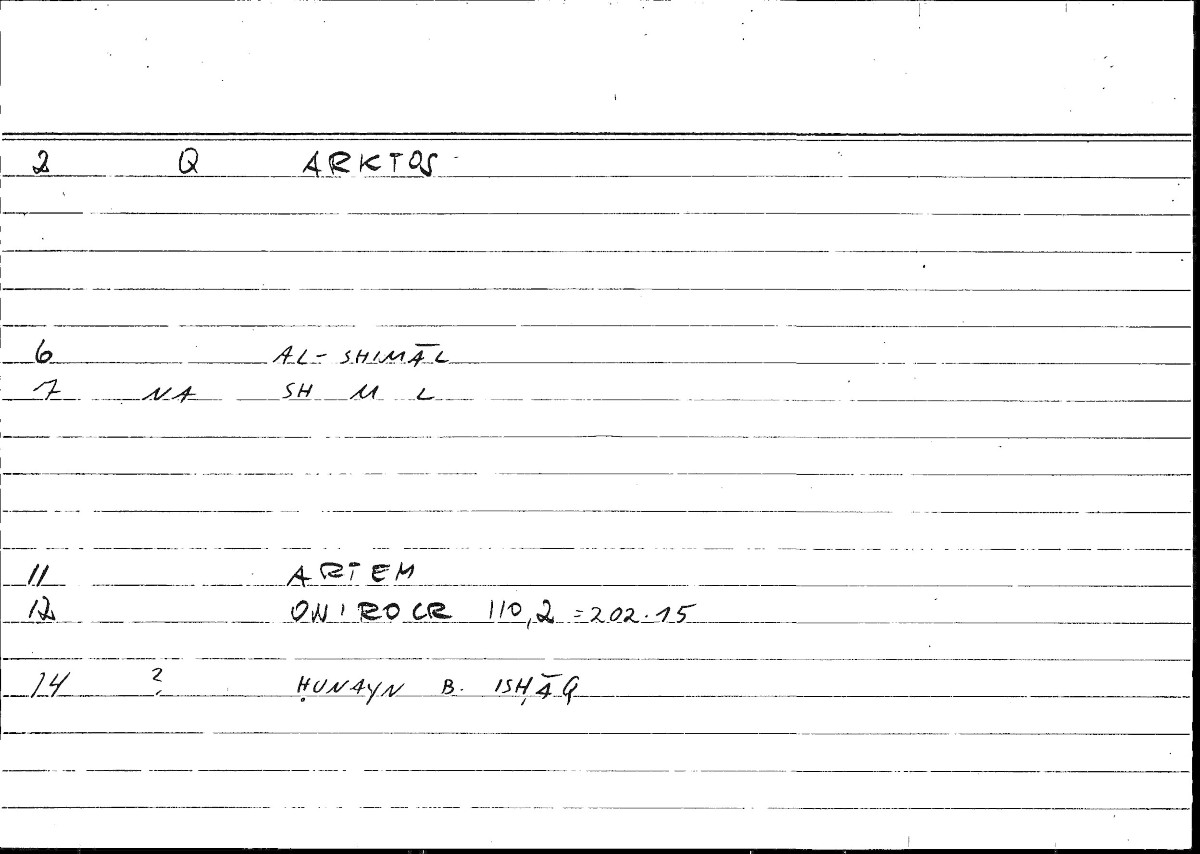 2 Q ARKTOS
6 AL-SHIMĀL
7 NA SH M L
11 ARTEM
12 ONIROCR 110,2 =202.15
14 ? ḤUNAYN B. ISḤĀQ